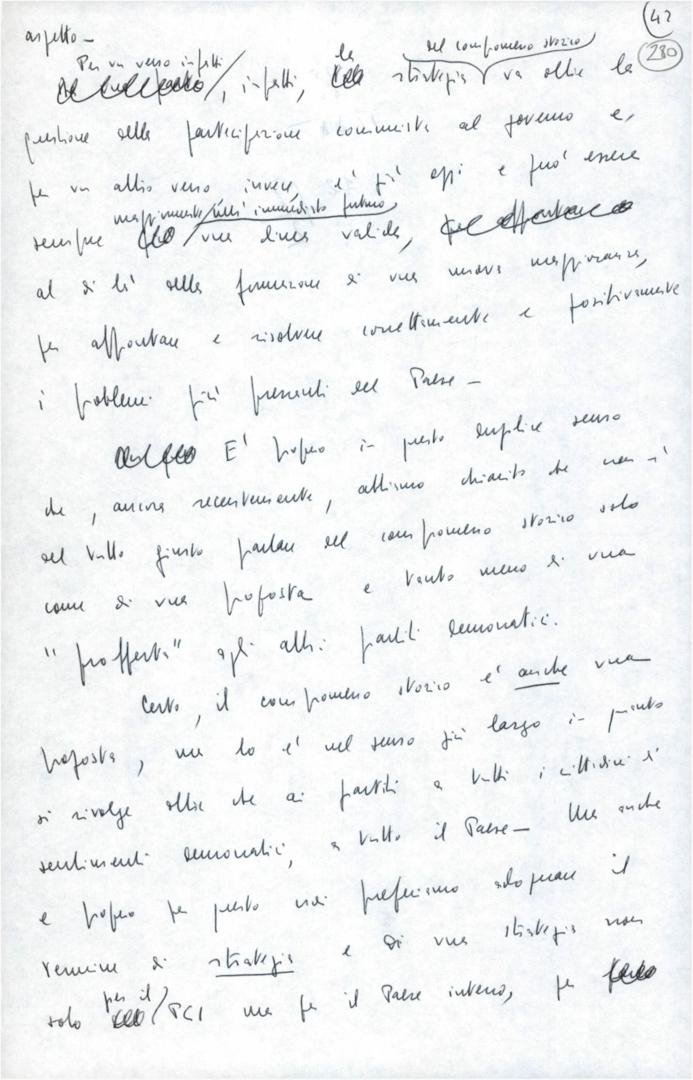 42
280
aspetto -
Per un verso infatti
la
del compromesso storico
, infatti, strategia va oltre la
questione della partecipazione comunista al governo e,
per un altro verso invece, è già oggi e può essere
maggiormente nell'immediato futuro
sempre una linea valida,
al di là della formazione di una nuova maggioranza,
per affrontare e risolvere correttamente e positivamente
i problemi più pressanti del Paese -
E' proprio in questo duplice senso
che, ancora recentemente, abbiamo chiarito che non è
del tutto giusto parlare del compromesso storico solo
come di una proposta e tanto meno di una
"profferta" agli altri partiti democratici.
Certo, il compromesso storico è anche una
proposta, ma lo è nel senso più largo in quanto
si rivolge oltre che ai partiti a tutti i cittadini di
sentimenti democratici, a tutto il Paese - Ma anche
e proprio per questo noi preferiamo adoperare il
termine di strategia e di una strategia non
per il
solo PCI ma per il Paese intero, per